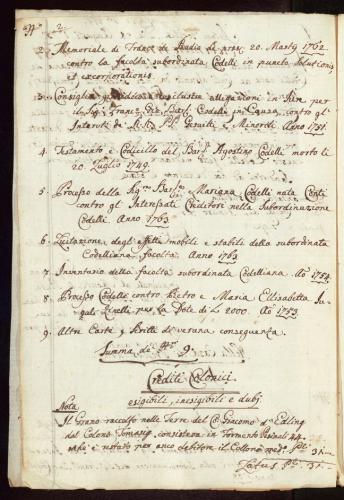 2.
2. Memoriale di Franco de Studia de pres. 20. Marty 1762
contro la facoltà subordinata Codelli in puncto Solutionis
et excorporationis
3.
Codelli in causa, contro gl'
Intenti de Gesuiti e Minoriti Anno 1751.
4. Testamento e Codicillo del Bar. Agostino Codelli morto li
20. Luglio 1749.
5. Processo della Sig.ra Mariana Codelli nata Conti
contro gl' Interessati Creditori nella Subordinazione
Codelli Anno 1763
6. Licitazione degl' effetti mobili e stabili della subordinata
Codelliana facoltà Anno 1763
7. Inventario della facoltà subordinata Codelliana. Ao 1754.
8. Processo Codelli contro Pietro e Maria Elisabetta In-
gali Zinelli per la Dote di L. 2000. Ao 1753.
9. Altre Carte e Scritti di veruna conseguenza.
Summa 9.
Crediti Colonici
esigibili, inesigibili e dubj.
Nota
Il Grano raccolto nelle Terre del Giacomo d'Edling
dal Colono consistenza in Formento Pesinali 44
e restato per anco debitore il Collono 3
Latus 3